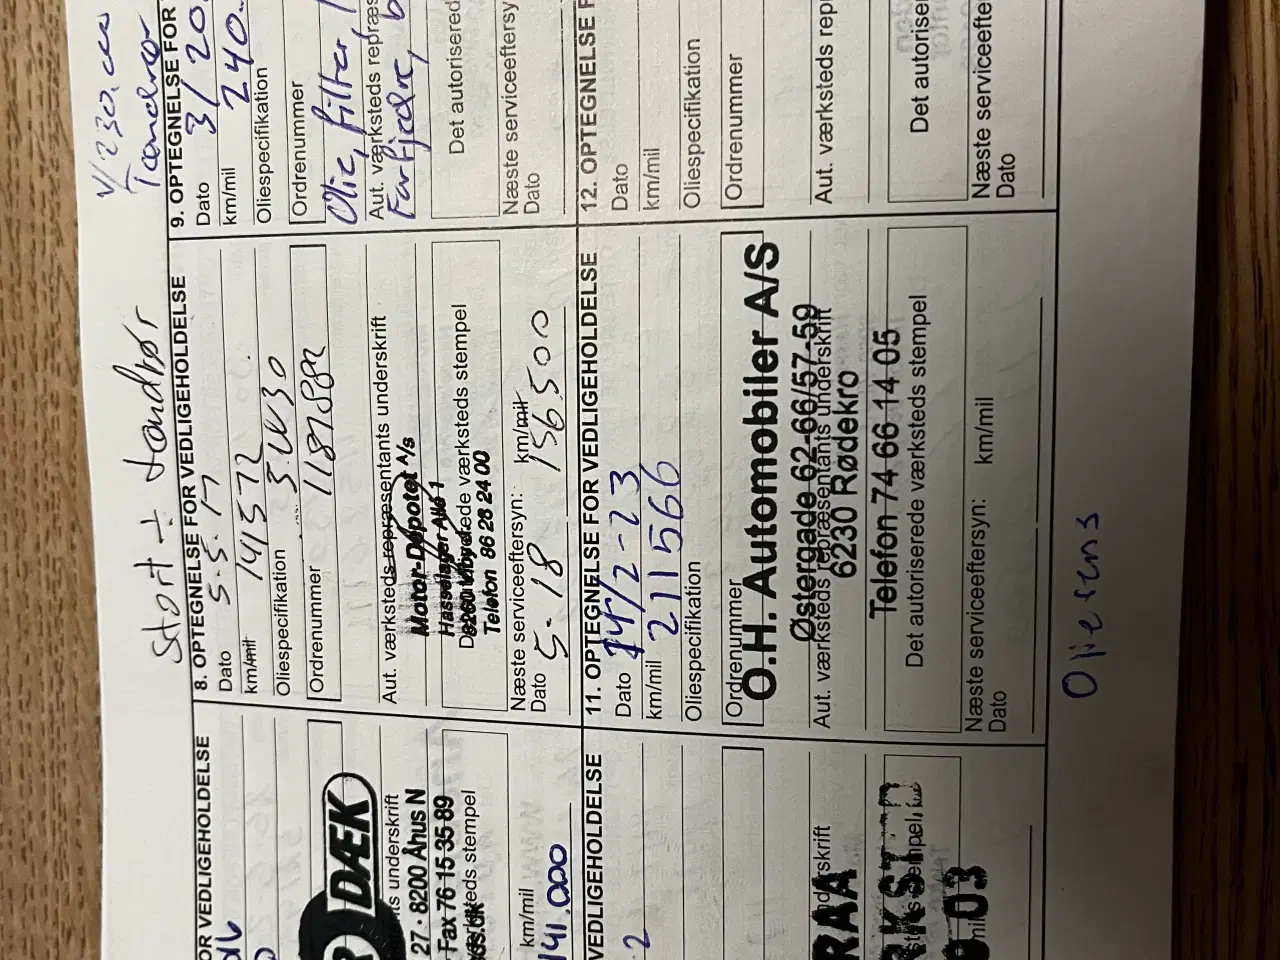 OR VEDLIGEHOLDELSE
DÆK
underskrift
27 · 8200 Århus N
Fax 76 15 35 89
stempel
km/mil
141.000
Stort ÷ tandrør
8. OPTEGNELSE FOR VEDLIGEHOLDELSE
Dato 5-5-17
km/mil 141572
Oliespecifikation 5W30
Ordrenummer
Aut. værksteds repræsentants underskrift
Motor-Depotet A/s
Hasselager Allé 1
8260 Viby J.
Det autoriserede værksteds stempel
Telefon 86 28 24 00
Næste serviceeftersyn: km/mil
Dato 5-18 156.500
V/230.000
Tandrem
9. OPTEGNELSE FOR
Dato 3/20
km/mil 240.
Oliespecifikation
Ordrenummer
Olie, filter,
Aut. værksteds repræs
Forfjedre,
Det autorisered
Næste serviceeftersy
Dato
VEDLIGEHOLDELSE
2
RAA
skrift
03
11. OPTEGNELSE FOR VEDLIGEHOLDELSE
Dato 14/2-23
km/mil 211566
Oliespecifikation
Ordrenummer
O.H. Automobiler A/S
Østergade 62-66/57-59
Aut. værksteds repræsentants underskrift
6230 Rødekro
Telefon 74 66 14 05
Det autoriserede værksteds stempel
Næste serviceeftersyn: km/mil
Dato
Oliesens
12. OPTEGNELSE F
Dato
km/mil
Oliespecifikation
Ordrenummer
Aut. værksteds repr
Det autoris
Næste serviceefte
Dato